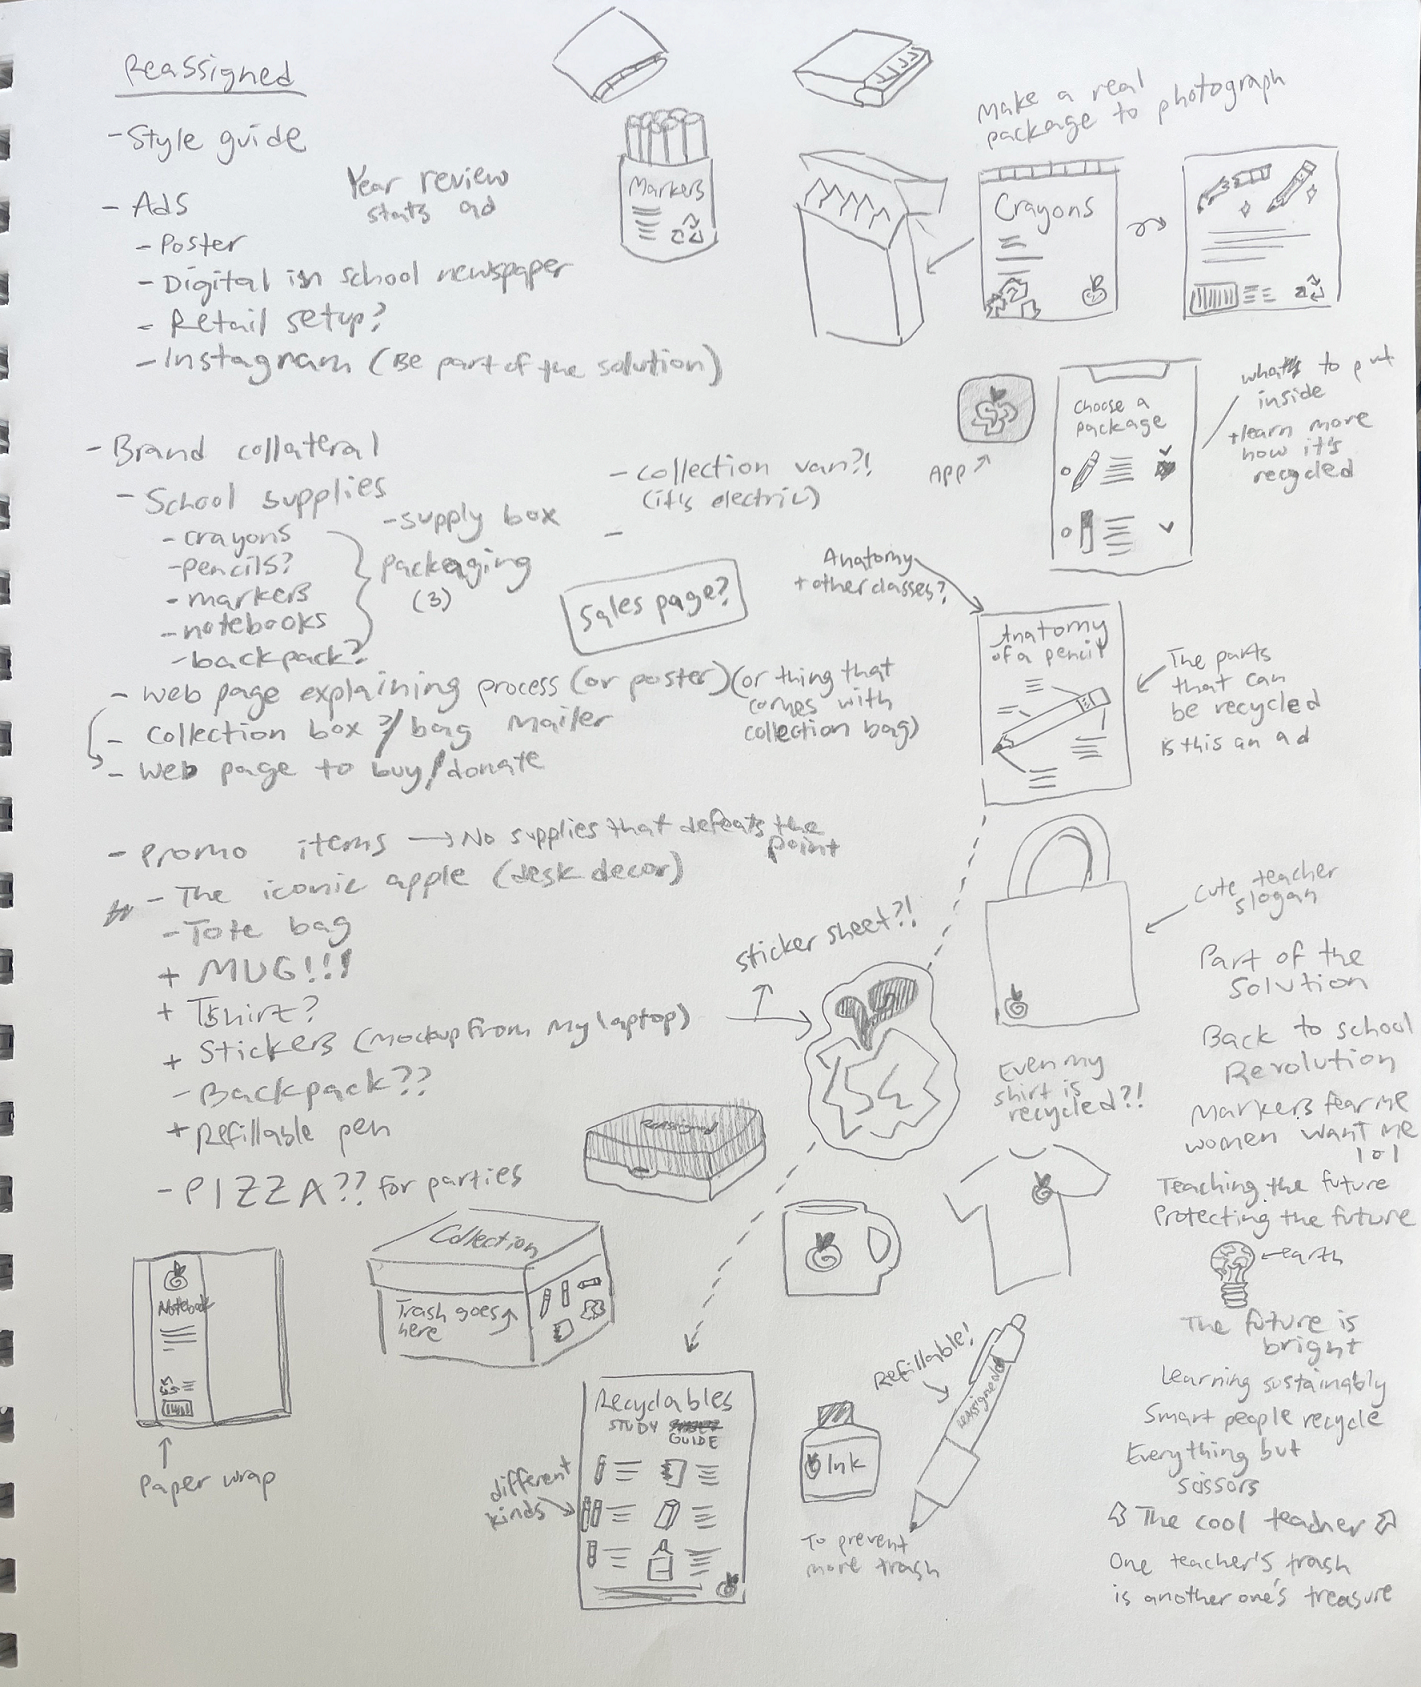 Reassigned
- Style guide
Year review
stats ad
- Ads
- Poster
- Digital in school newspaper
- Retail setup?
- Instagram (Be part of the solution)
- Brand collateral
- School supplies
- crayons
- pencils?
- markers
- notebooks
- backpack?
- supply box
packaging
(3)
- collection van?!
(it's electric)
-
Sales page?
- web page explaining process (or poster) (or thing that
comes with
collection bag)
- collection box?/bag mailer
- web page to buy/donate
- Promo items → No supplies that defeats the
point
- The iconic apple (desk decor)
- Tote bag
+ MUG!!!
+ Tshirt?
+ Stickers (mockup from my laptop)
- Backpack??
+ Refillable pen
- PIZZA?? for parties
Markers
Make a real
package to photograph
Crayons
App
Choose a
package
what to put
inside
+ learn more
how it's
recycled
Anatomy
+ other classes?
Anatomy
of a pencil
The parts
that can
be recycled
is this an ad
cute teacher
slogan
sticker sheet?!
Part of the
solution
Back to school
Revolution
Even my
shirt is
recycled?!
Markers fear me
women want me
lol
Teaching the future
Protecting the future
earth
The future is
bright
Learning sustainably
Smart people recycle
Everything but
scissors
The cool teacher
One teacher's trash
is another one's treasure
Collection
Trash goes
here
Notebook
Paper wrap
Recyclables
STUDY
GUIDE
different
kinds
Refillable!
Reassigned
Ink
To prevent
more trash